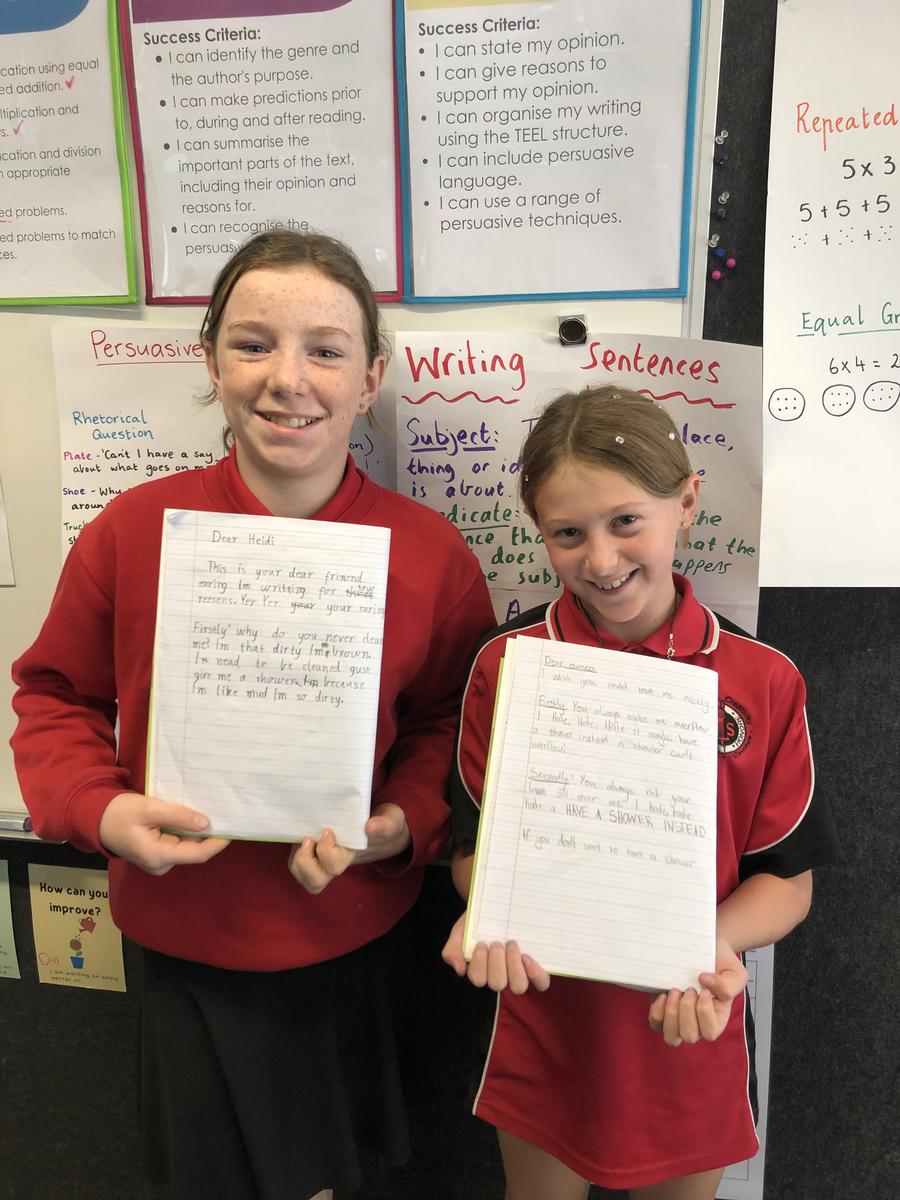 cation using equal
ed addition.✓
ltiplication and
s. ✓
ication and division
n appropriate
ed problems.
ed problems to match
ces.
Success Criteria:
• I can identify the genre and
the author's purpose.
• I can make predictions prior
to, during and after reading.
• I can summarise the
important parts of the text,
including their opinion and
reasons for.
• I can recognise the
persuasiv
Success Criteria:
• I can state my opinion.
• I can give reasons to
support my opinion.
• I can organise my writing
using the TEEL structure.
• I can include persuasive
language.
• I can use a range of
persuasive techniques.
Repeated
5 x 3
5 + 5 + 5
+ +
Equal Gr
6 x 4 = 2
Persuasive
Rhetorical
Question
Plate - 'Can't I have a say
about what goes on m
Shoe - Why
aroun
Truc
st
on)
Writing Sentences
Subject: T lace,
thing or id
is about.
dicate: the
nce tha hat the
does appens
e subj
A
Dear Heidi
This is your dear frinend
earing Im writting for three few
reesens. Yer Yer your your earing
Firstly' why do you never clean
me? Im that dirty Im brown.
Im nead to be cleaned gust
give me a shower Im because
Im like mud Im so dirty.
Dear owners
I wish you could treat me nicely.
Firstly: You always make me overflow
I Hate, Hate, Hate it maybe have
a shower instead a shower can't
overflow!
Secondly: You always rub your
all over me I hate, hate
hate it HAVE A SHOWER INSTEAD
If you don't want to have a shower
How can you
improve?
I am working on being
better at